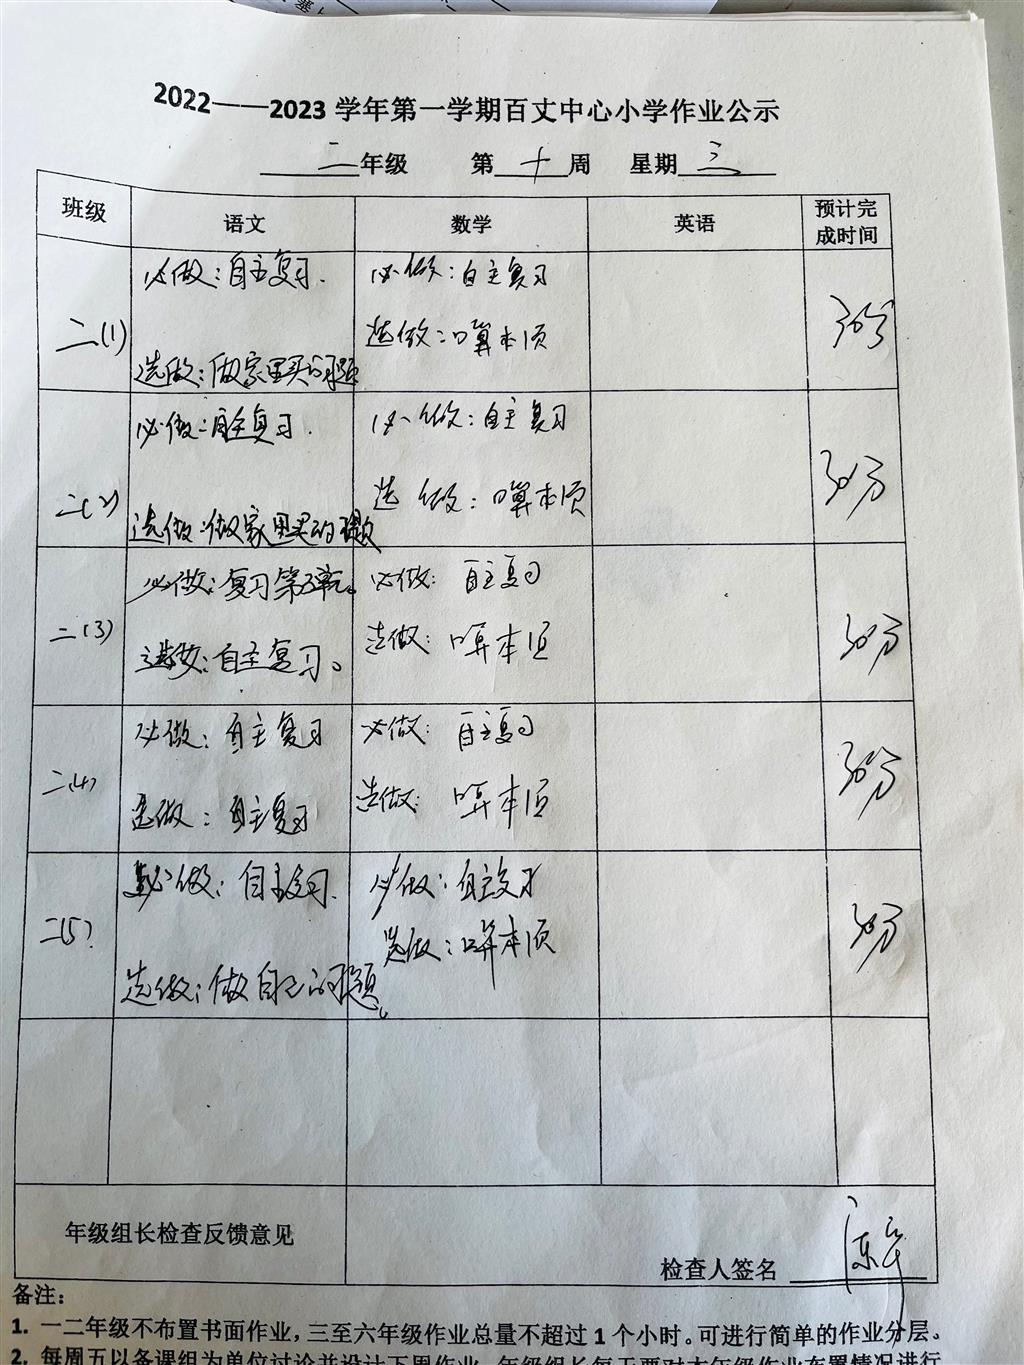 2022——2023 学年第一学期百丈中心小学作业公示
二年级 第十周 星期三
班级 语文 数学 英语 预计完成时间
二(1) 必做：自主复习. 必做：自主复习 30分
选做：做家里买的习题 选做：口算本1页
二(2) 必做：自主复习. 必做：自主复习 30分
选做：做家里买的习题 选做：口算本1页
二(3) 必做：复习第五单元。 必做：自主复习 30分
选做：自主复习。 选做：口算本1页
二(4) 必做：自主复习 必做：自主复习 30分
选做：自主复习 选做：口算本1页
二(5) 必做：自主复习. 必做：自主复习 30分
选做：做自己的习题。 选做：口算本1页
年级组长检查反馈意见
检查人签名
备注：
1. 一二年级不布置书面作业，三至六年级作业总量不超过 1 个小时。可进行简单的作业分层。
2. 每周五以备课组为单位讨论并设计下周作业，年级组长每天要对本年级作业布置情况进行